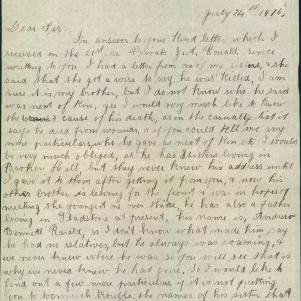 July 24th 1916
Dear Sir:
In answer to your kind letter which I
received on the 21st re Private Jut. Ronald, since
writing to you I had a letter from one of my sisters, & she
said that she got a wire to say he was killed, I am
sure it is my brother, but I do not know who he said
was next of kin, yes I would very much like to know
the cause of his death, as in the casualty list it
says he died from wounds, & if you could tell me any
more particulars, who he gave as next of kin, etc I would
be very much obliged, as he has a sister living in
Brother Hall, but they never knew his address until
I gave it to them after getting it from you, & since his
other brother was leaving for the front & was in hopes of
meeting the youngest one over there, he has also a father
living in Gladstone at present, his name is, Andrew
Bennett Ronald, so I don't know what made him say
he had no relatives, but he always was roaming, &
we never knew where he was so you will see that is
why we never knew he had gone, So I would like to
find out a few more particulars if it is not putting
you to too much trouble, the names of his sister that